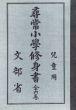 兒童用
尋常小學修身書
文部省